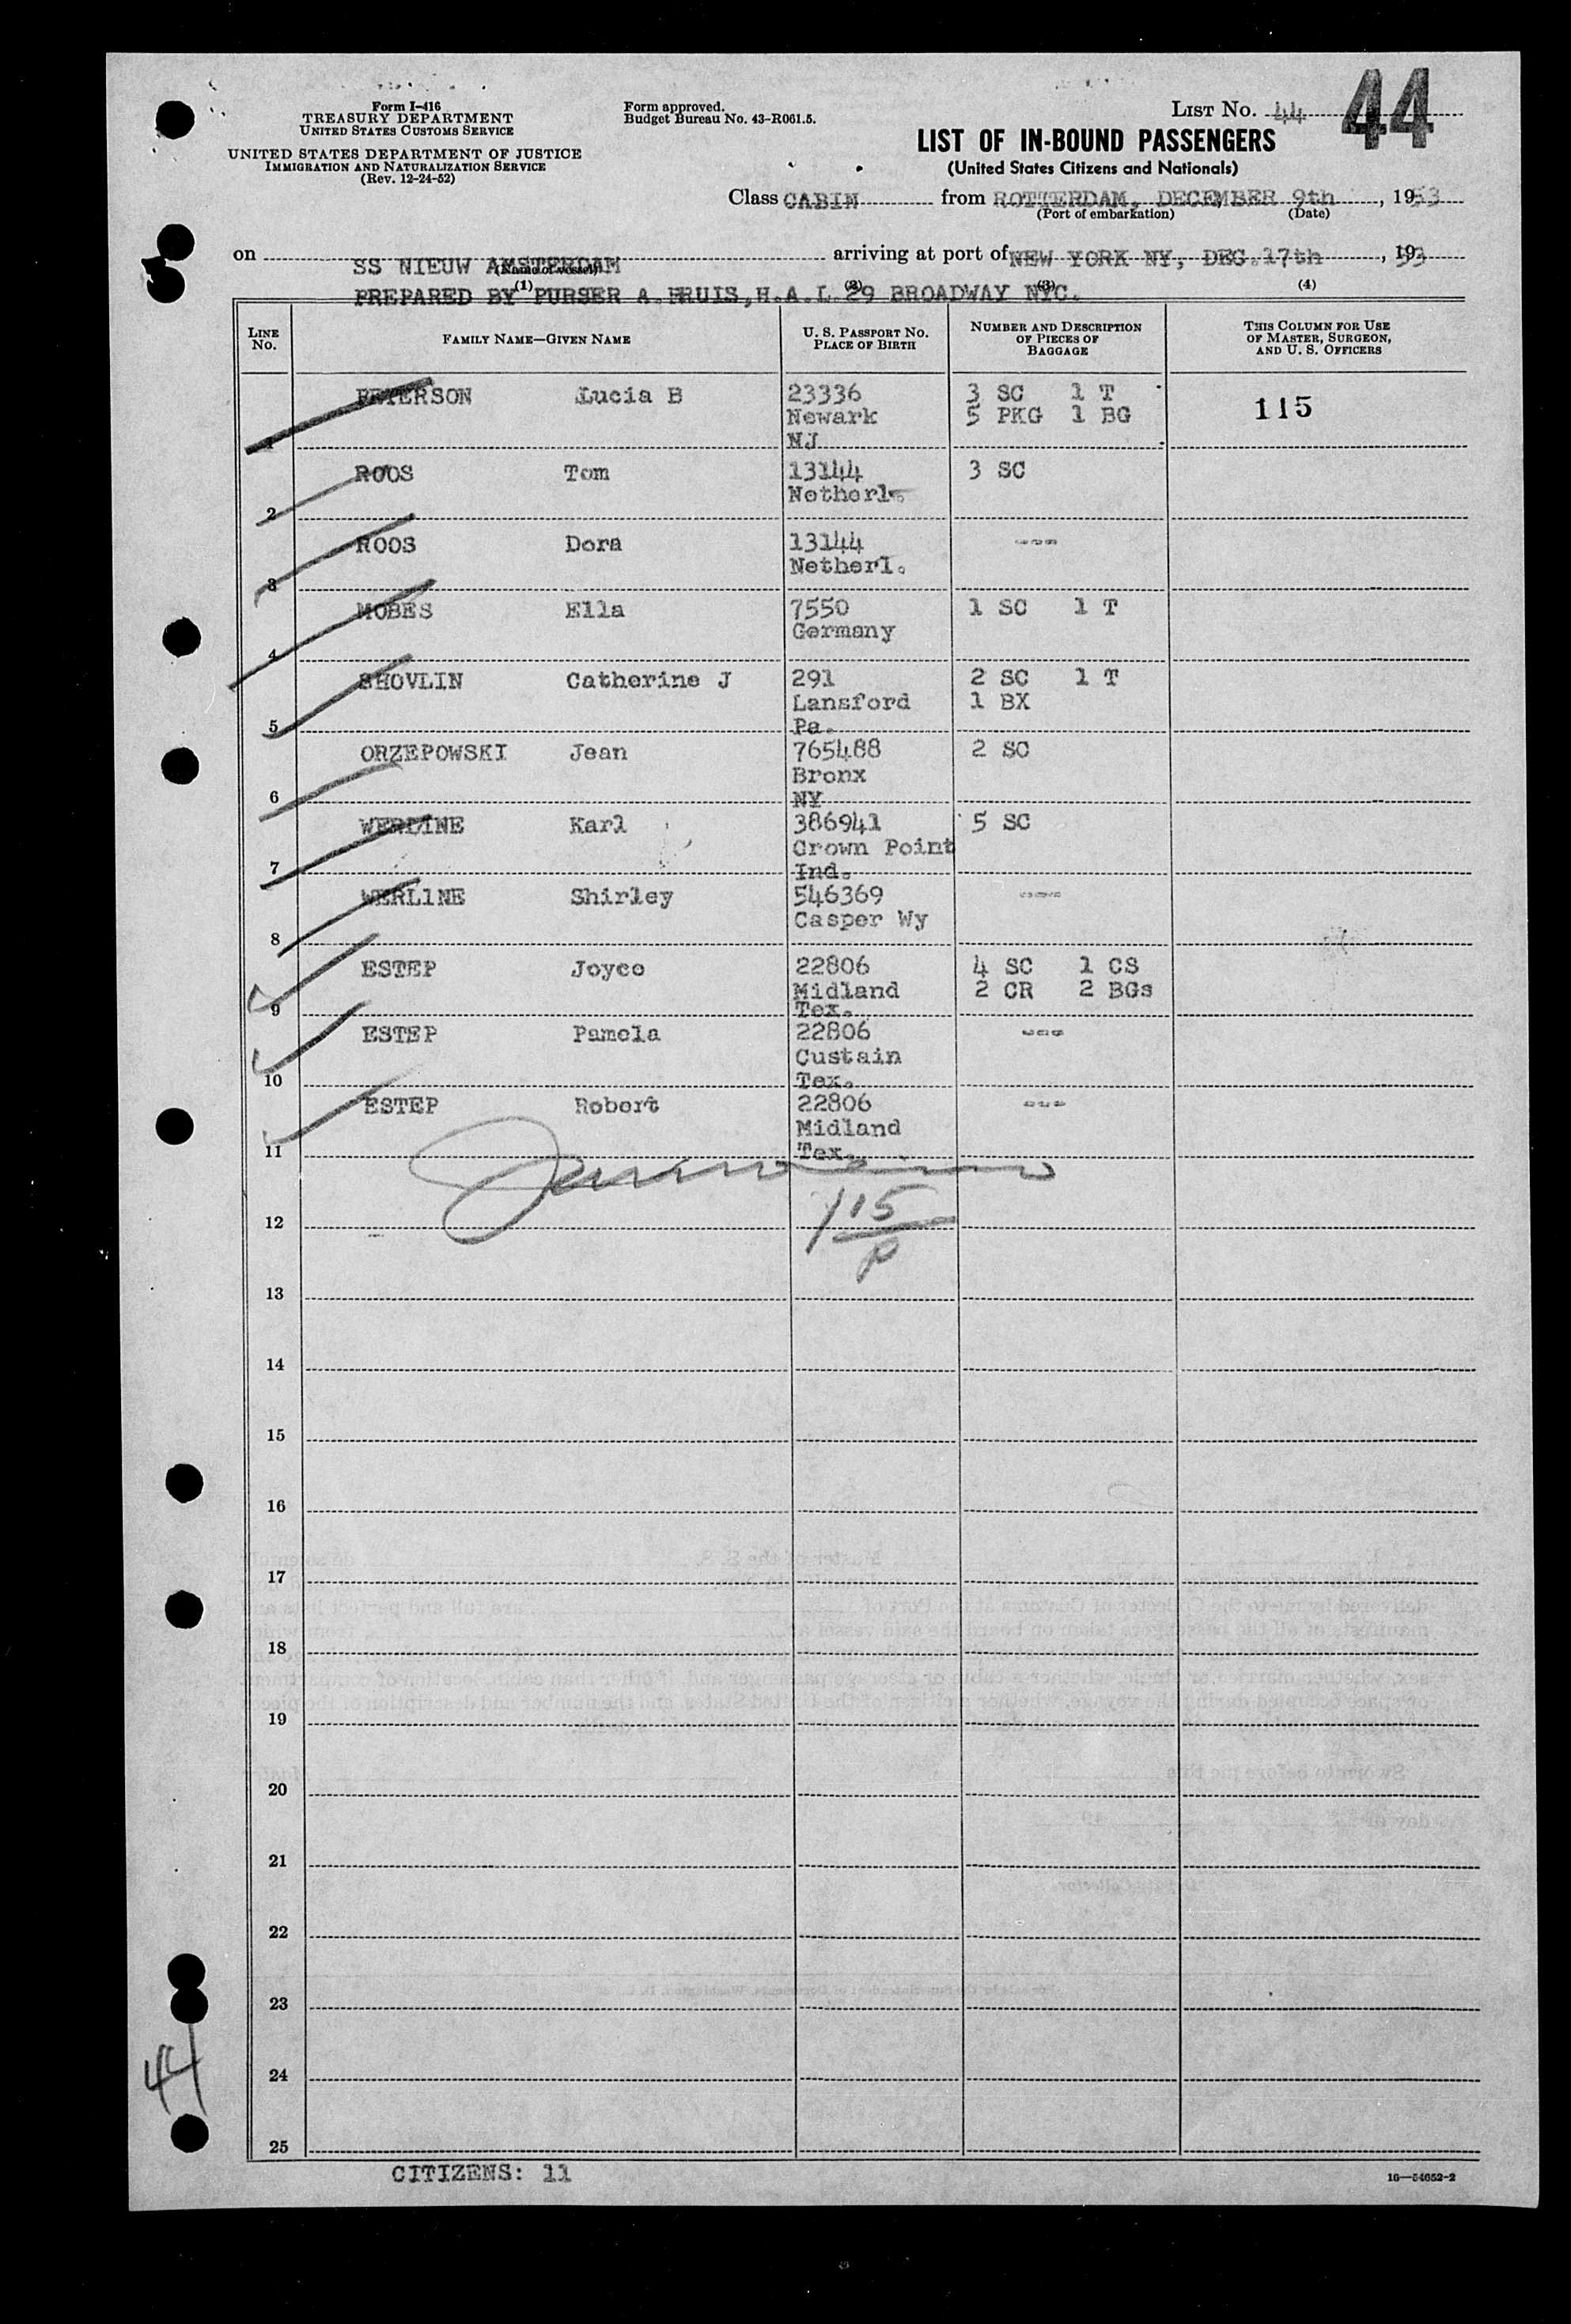 Form I-416
TREASURY DEPARTMENT
UNITED STATES CUSTOMS SERVICE
UNITED STATES DEPARTMENT OF JUSTICE
IMMIGRATION AND NATURALIZATION SERVICE
(Rev. 12-24-52)
Form approved.
Budget Bureau No. 43-R061.5.
LIST No. 44 44
LIST OF IN-BOUND PASSENGERS
(United States Citizens and Nationals)
Class CABIN from ROTTERDAM, DECEMBER 9th, 1953
(Port of embarkation) (Date)
on SS NIEUW AMSTERDAM arriving at port of NEW YORK NY, DEC.17th, 1953
(Name of vessel)
PREPARED BY PURSER A. BRUIS, H.A.L 29 BROADWAY NYC.
(1) (2) (3) (4)
LINE No. FAMILY NAME—GIVEN NAME U. S. PASSPORT No. PLACE OF BIRTH NUMBER AND DESCRIPTION OF PIECES OF BAGGAGE THIS COLUMN FOR USE OF MASTER, SURGEON, AND U. S. OFFICERS
1 PETERSON Lucia B 23336 3 SC 1 T 115
Newark 5 PKG 1 BG
NJ
2 ROOS Tom 13144 3 SC
Netherl.
3 ROOS Dora 13144 ---
Netherl.
4 MOBES Ella 7550 1 SC 1 T
Germany
5 SHOVLIN Catherine J 291 2 SC 1 T
Lansford 1 BX
Pa.
6 ORZEPOWSKI Jean 765488 2 SC
Bronx
NY
7 WERLINE Karl 386941 5 SC
Crown Point
Ind.
8 WERL1NE Shirley 546369 ---
Casper Wy
9 ESTEP Joyce 22806 4 SC 1 CS
Midland 2 CR 2 BGs
Tex.
10 ESTEP Pamela 22806 ---
Custain
Tex.
11 ESTEP Robert 22806 ---
Midland
Tex.
12 115
13
14
15
16
17
18
19
20
21
22
23
24
25
44
CITIZENS: 11
16—54652-2